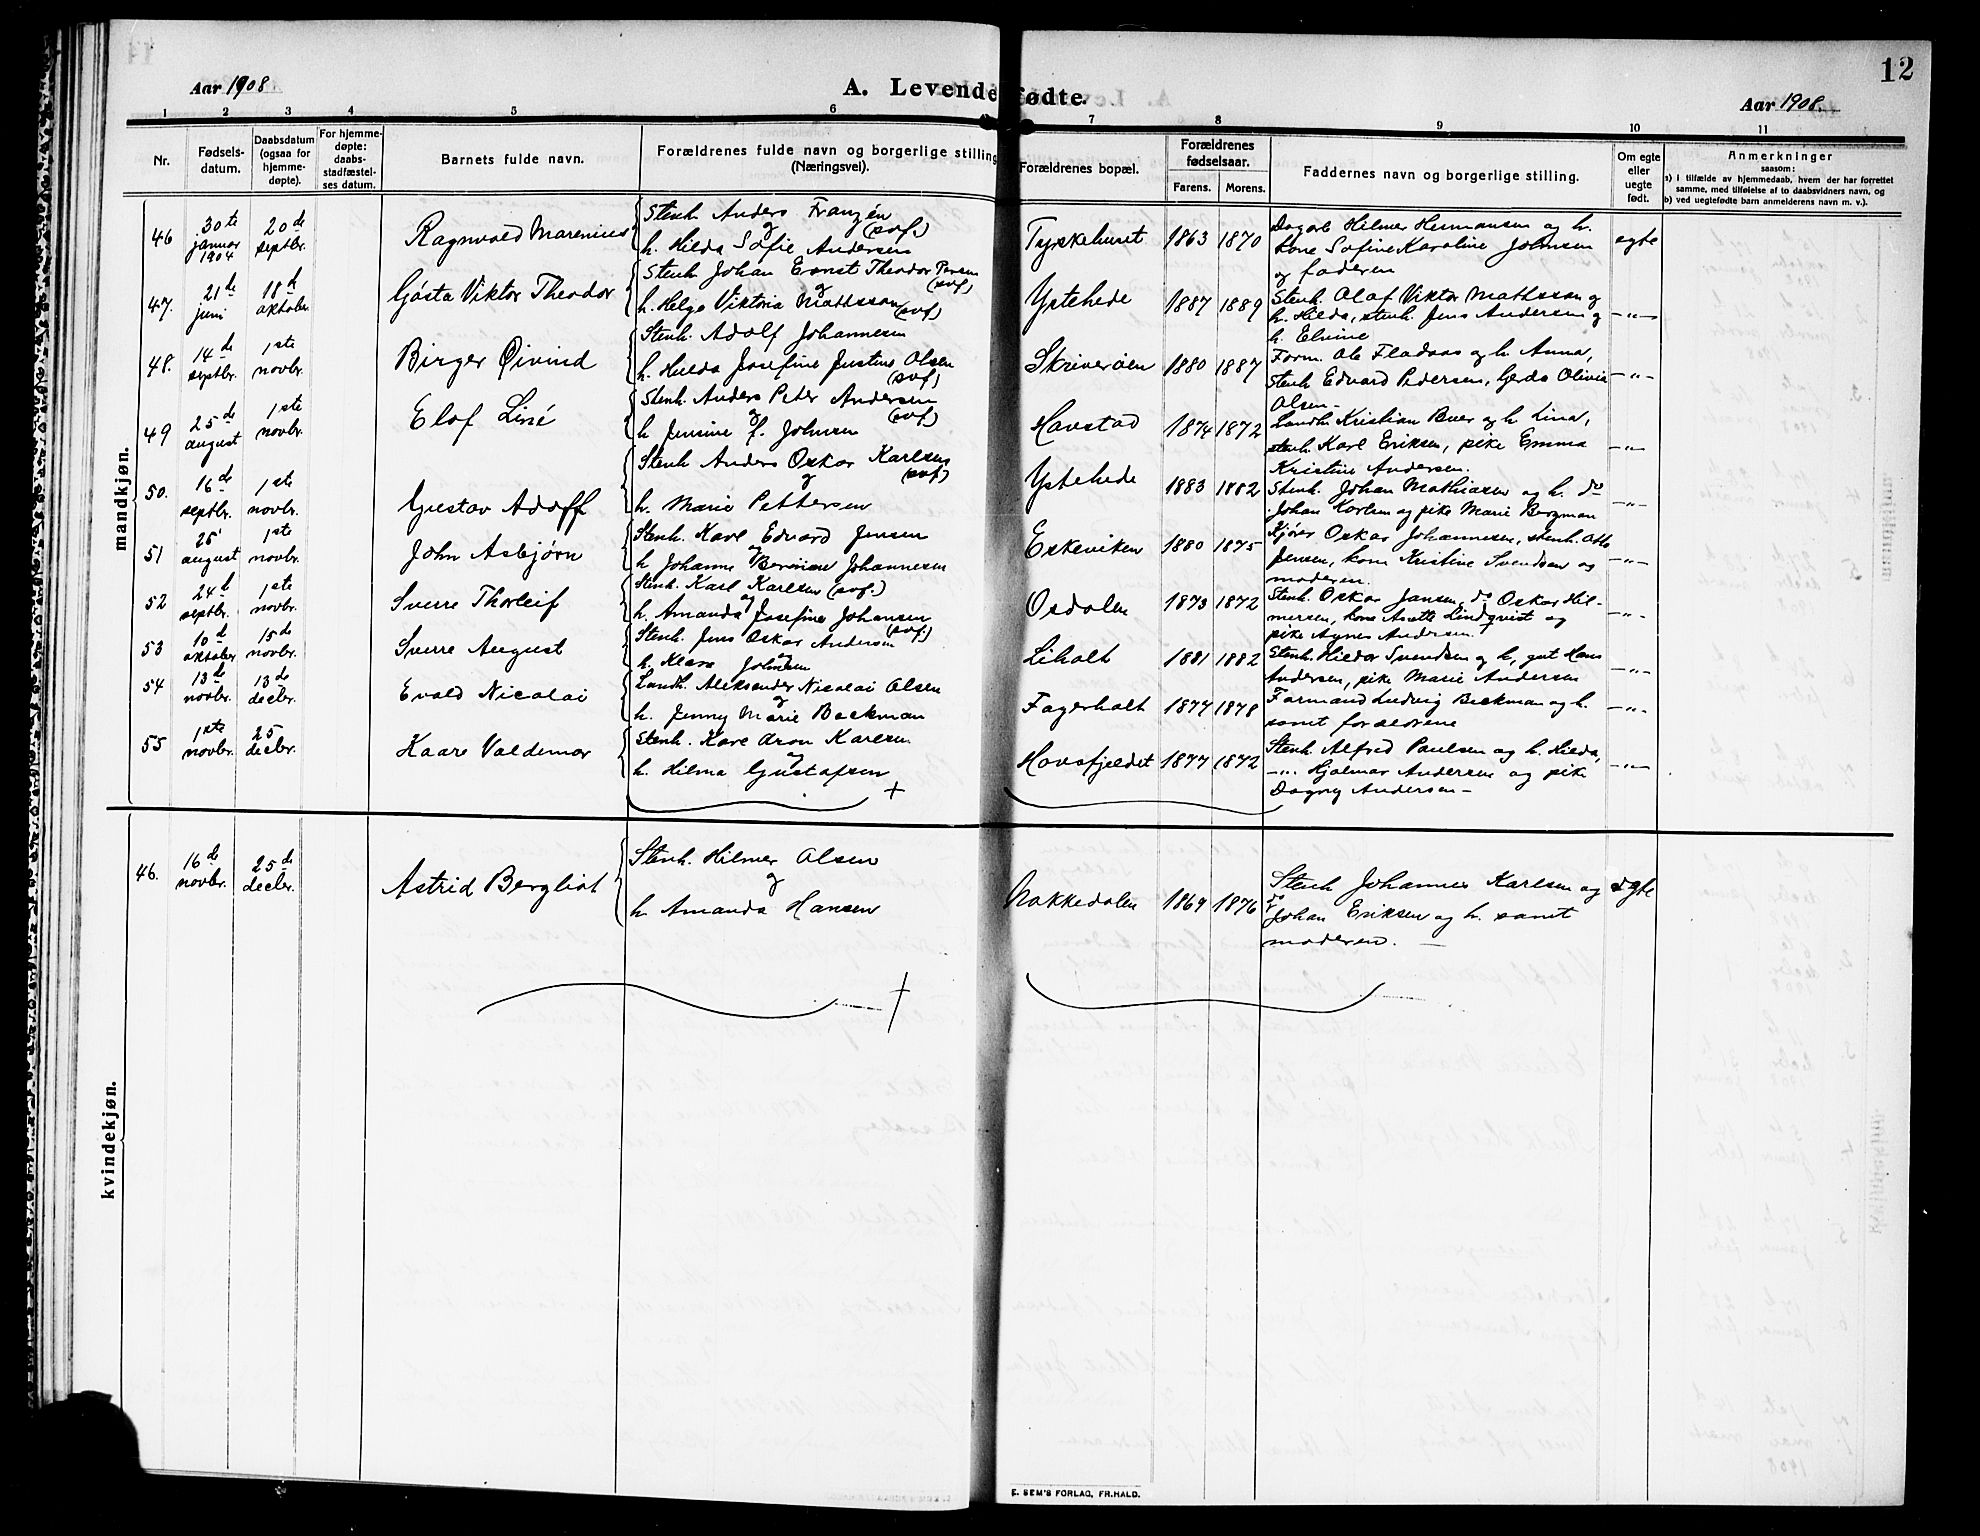 12
Aar 1908
A. Levendefødte.
Aar 1908.
1 2 3 4 5 6 7 8 9 10 11
Nr.
Fødsels-
datum.
Daabsdatum
(ogsaa for
hjemme-
døpte).
For hjemme-
døpte:
daabs-
stadfæstel-
ses datum.
Barnets fulde navn.
Forældrenes fulde navn og borgerlige stilling
(Næringsvei).
Forældrenes bopæl.
Forældrenes
fødselsaar.
Farens. Morens.
Faddernes navn og borgerlige stilling.
Om egte
eller
uegte
født.
Anmerkninger
saasom:
a) i tilfælde av hjemmedaab, hvem der har forrettet
samme, med tilføielse af to daabsvidners navn, og
b) ved uegtefødte barn anmelderens navn m. v.).
mandkjøn.
46 30te januar 1904 20de septbr. Ragnvald Marenius
Stenh. Anders Franzén
og (svf.)
h. Hilda Sofie Andersen
Tyskehuset 1863 1870
Dagarb Hilmer Hermansen og h.
kone Sofine Karoline Johnsen
og faderen
egte
47. 21de juni 18de oktober Gösta Viktor Theodor
Stenh Johan Ernst Theodor Persen
og (svf)
h. Helga Viktoria Mathsson (svf)
Ystehede 1887 1889
Stenh. Olaf Viktor Mathsson og
h. Hilda, stenh. Jens Andersen og
h. Elvine
-"-
48. 14de septbr. 1ste novbr. Birger Øivind
Stenh. Adolf Johannesen
h. Hulda Josefine Justine Olsen
(svf)
Skriverøen 1880 1887
Form. Ole Fladaas og h. Anna,
Stenh Edvard Pedersen, Gerda Olivia
Olsen-
-"-
49 25de august 1ste novbr. Elof Liné
Stenh. Anders Peter Andersen
og (svf)
h Jensine f. Johnsen
Havstad 1874 1872
Landh Kristian Buer og h Lina,
stenh. Karl Eriksen, pike Emma
Kristine Andersen.
-"-
50. 16de septbr. 1ste novbr. Gustav Adolf
Stenh Anders Oskar Karlsen
og (svf)
h. Marie Pettersen
Ystehede 1883 1882
Stenh. Johan Mathiasen og h. do
Johan Karlsen og pike Marie Bergman
-"-
51 25' august 1ste novbr. John Asbjørn
Stenh. Karl Edvard Jensen
og
h Johanne Bernine Johannesen
Eskeviken 1880 1875
Kjører Oskar Johannesen, stenh. Otto
Jensen, kone Kristine Svendsen og
moderen.
-"-
52 24de septbr. 1ste novbr. Sverre Thorleif
Stenh. Karl Karlsen (svf.)
og
h. Amanda Josefine Johansen
(svf)
Osdalen 1873 1872
Stenh. Oskar Jansen, do Oskar Hil-
mersen, kone Anette Lindqvist og
pike Agnes Andersen.
-"-
53 10d oktober 15de novbr. Sverre August
Stenh. Jens Oskar Andersen
og
h. Klara Johnsen
Liholt 1881 1882
Stenh. Hildor Svendsen og h, gut Hans
Andersen, pike Marie Andersen
-"-
54 13de novbr. 13de decbr. Evald Nicolai
Landh. Aleksander Nicolai Olsen
og
h. Jenny Marie Beckman
Fagerholt 1877 1878
Formand Ludvig Beckman og h.
samt forældrene
-"-
55 1ste novbr. 25 decbr. Kaare Valdemar
Stenh. Karl Aron Karlsen
og
h. Hilma Gustafsen
Havsfjeldet 1877 1872
Stenh. Alfred Paulsen og h. Hilda,
-"- Hjalmar Andersen og pike
Dagny Andersen-
-"-
kvindekjøn.
46. 16de novbr. 25de decbr. Astrid Bergliot
Stenh. Hilmer Olsen
og
h. Amanda Hansen
Nakkedalen 1869 1876
Stenh Johannes Karlsen og
do Johan Eriksen og h. samt
moderen.
egte
E. SEM'S FORLAG, FR.HALD.